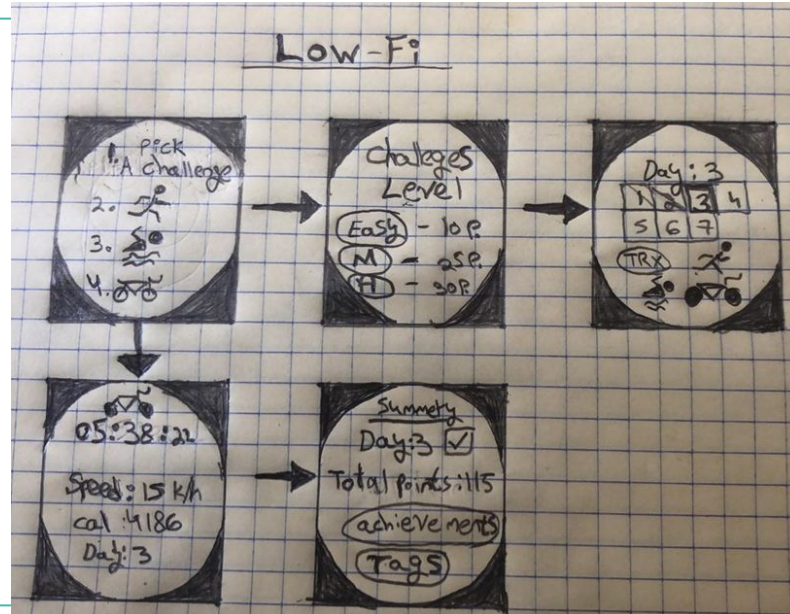 Low-Fi
1. Pick
A challenge
2.
3.
4.
Challeges
Level
Easy - 10 P.
M - 25P.
H - 30P.
Day: 3
1 2 3 4
5 6 7
TRX
05:38:22
Speed: 15 k/h
cal: 4186
Day: 3
Summety
Day: 3
Total points: 115
achievements
Tags